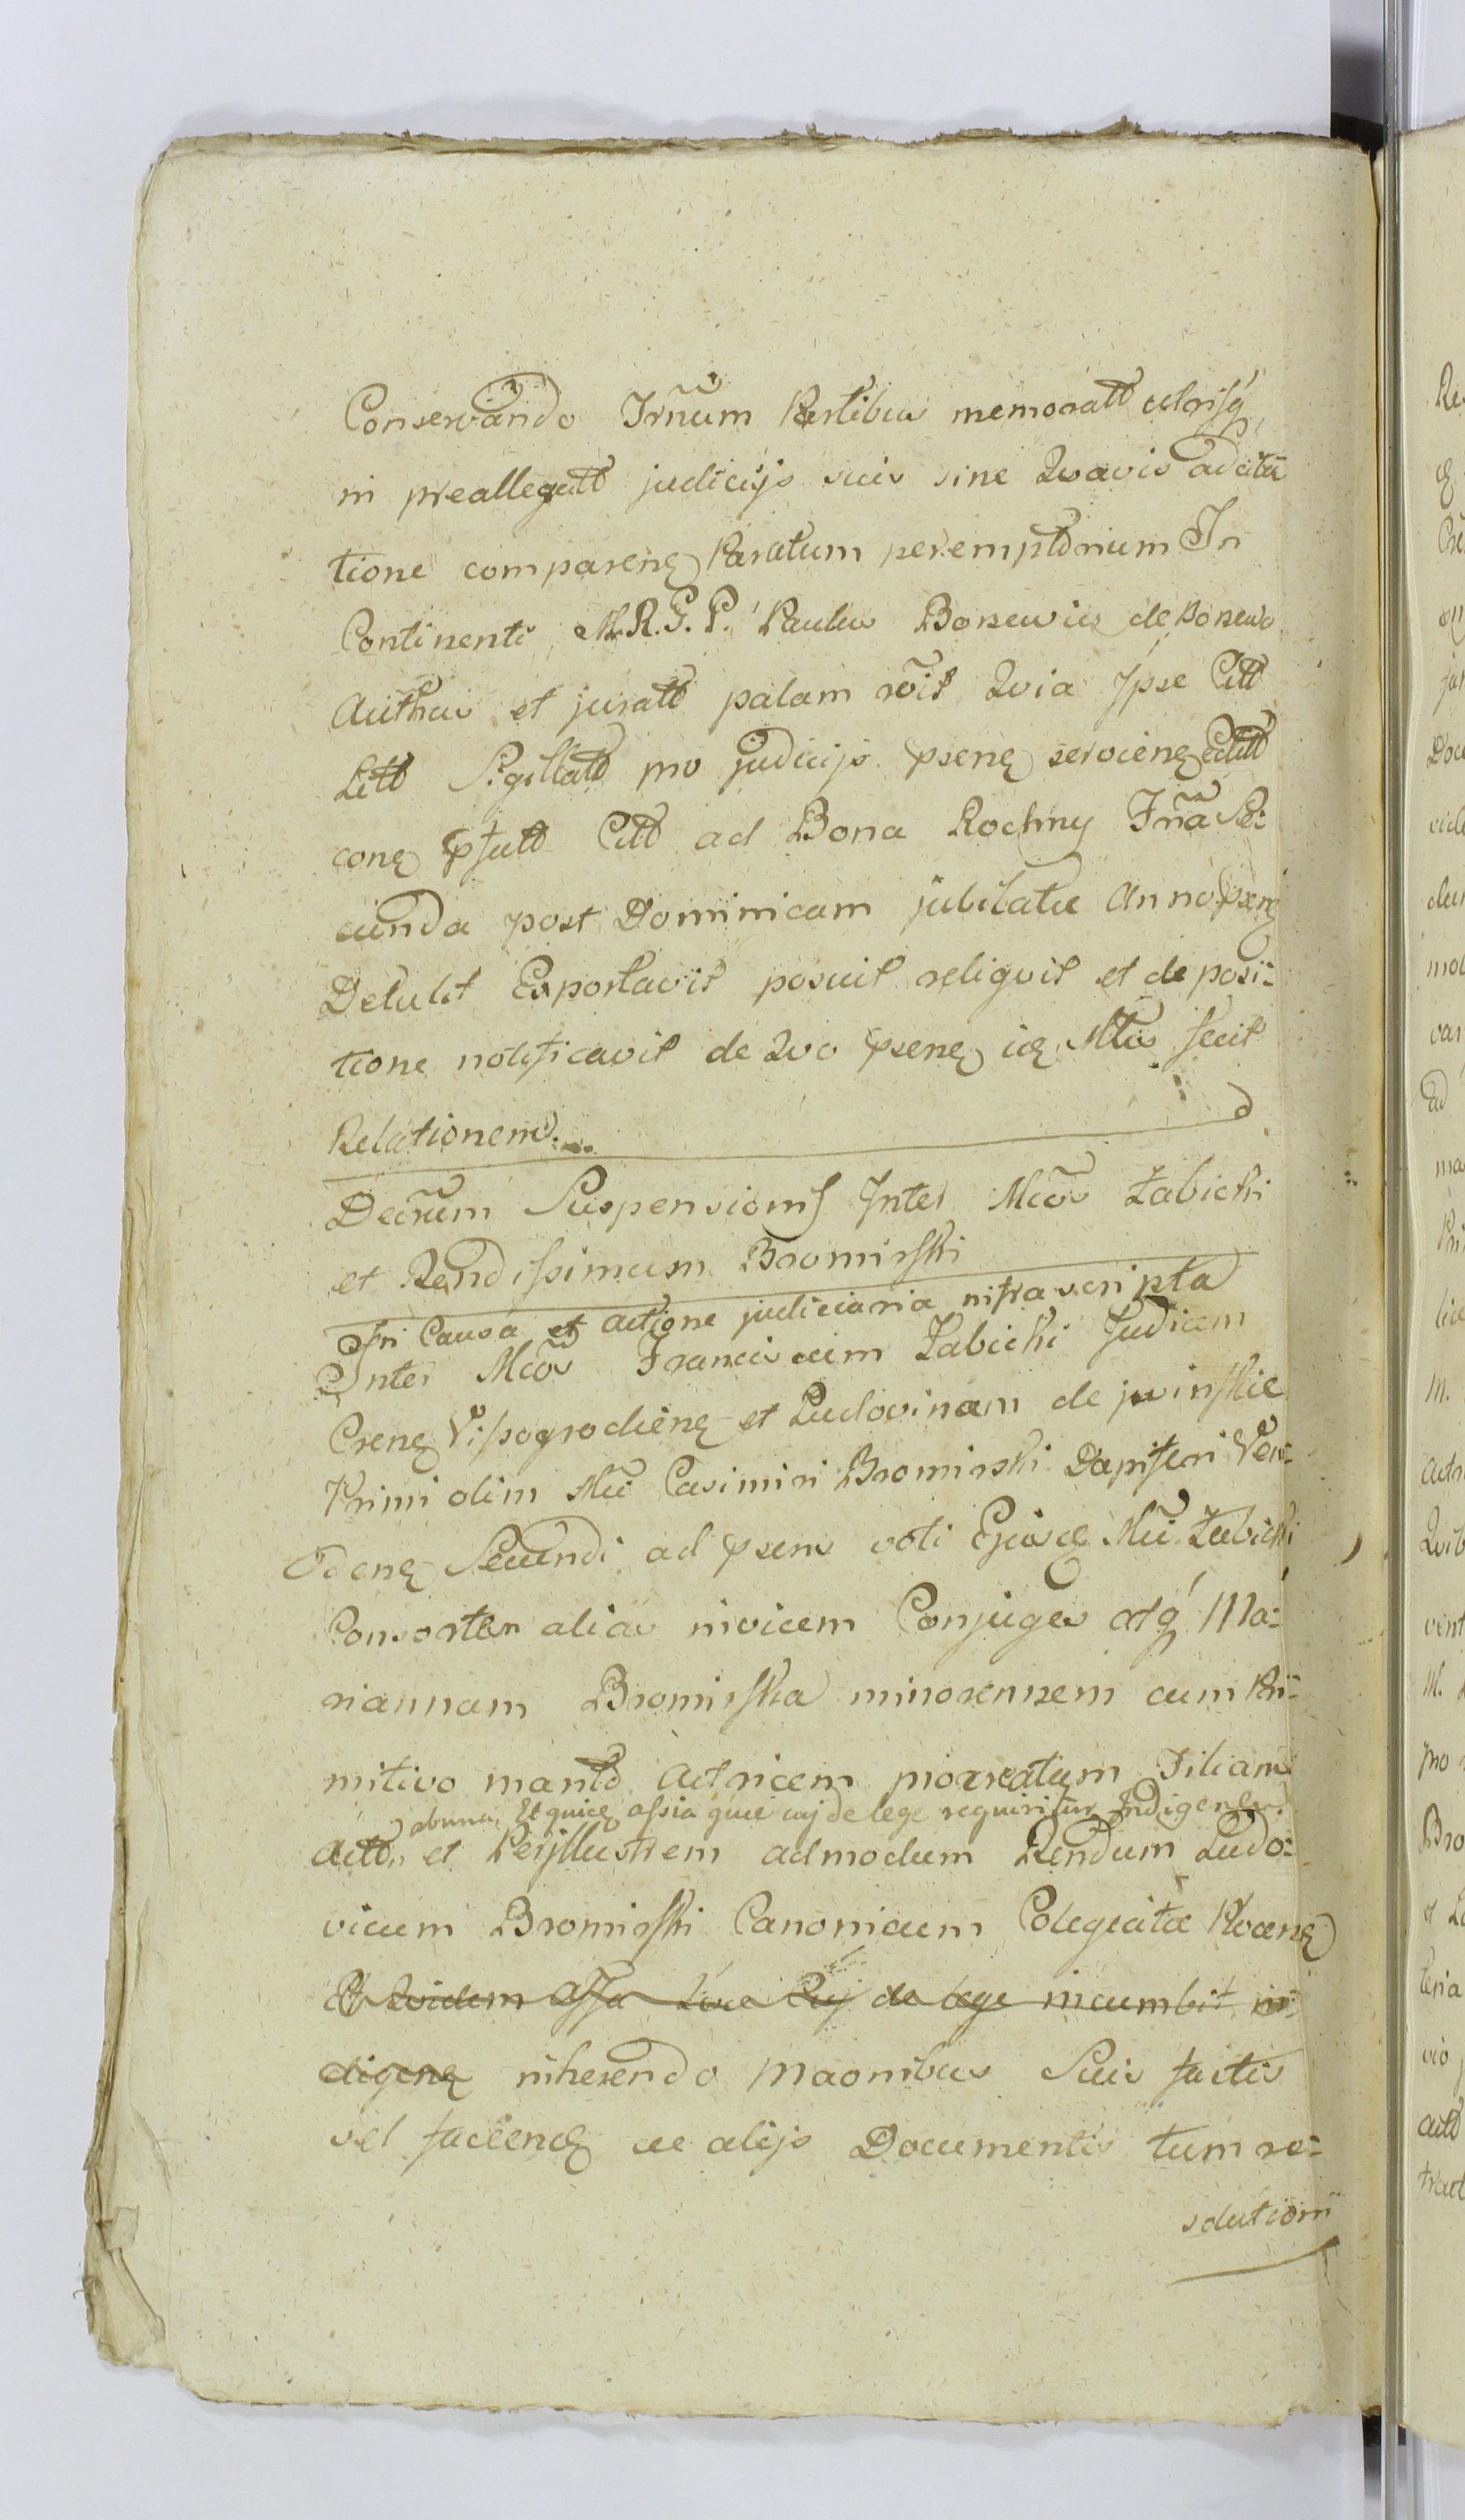 Conservando Trm̃um Partibus memoratt utrisq,
in preallegatt judicijs suis sine Quavis adcita
tione comparenę Paratum peremptorium In
Continenti M.R.G.P. Paulus Borzewicz de Borzewo
Authus et juratt palam rõit Quia Jpse Citt
Litt Sigillatt pro judicijs psenę servienę edtt
conę psutt Citt ad Bona Rochny Frã Se:
cunda post Dominicam jubilatæ Anno psenę
Detulit Exportavit posuit reliqvit et de posi:
tione notificavit de Qvo psenę ię Mtus fecit
Relationem.
Decr̃um Suspensionis Inter Mcos Zabicki
et Rendissimum Bromirski
In Causa et actione judiciaria infrascripta
Inter Mcos Franciscum Zabicki Judicem
Crenę Vissogrodienę et Ludovinam de
Primi olim Mci Casimiri Bromirski Dapiferi Ven:
denę Secundi ad psens voti Ejusdę Mci Zabicki
Consortem alias invicem Conjuges atq Ma:
riannam Bromirska minorennem cum Pri:
mitivo mantto Actricem procreatam Filiam
ab una, Et quidę assia quæ cuj de lege requiritur Indigenę.
Actt, et Perjllustrem admodum Rendum Ludo:
vicum Bromirski Canonicum Colegiatæ Plocenę
Et Qvidem assa Quæ Cuj de lege incumbit in:
digenę inherendo Maonibus Suis factis
vel faciendę ac alijs Documentis tum re:
solutioni